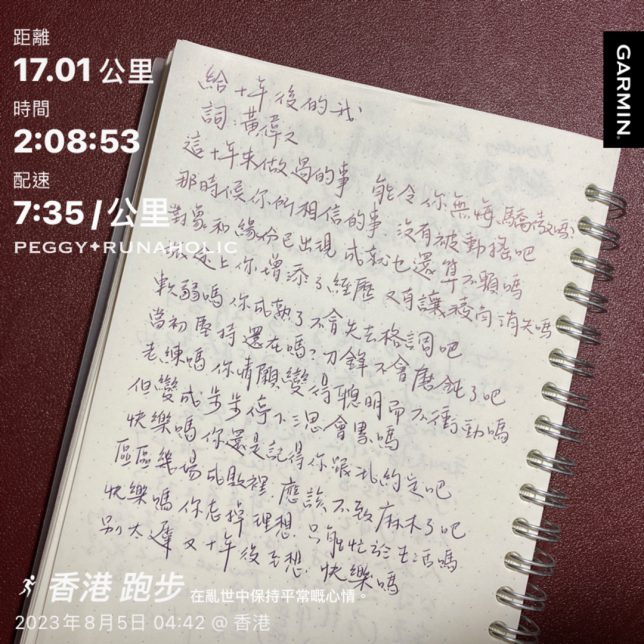 距離
17.01 公里
時間
2:08:53
配速
7:35 /公里
PEGGY+RUNAHOLIC
GARMIN
給十年後的我
詞：黃偉文
這十年來做過的事 能令你無悔 驕傲嗎
那時候你所相信的事 沒有被動搖吧
對象和緣份已出現 成就也還算不賴嗎
旅途上你增添了經歷 又有讓棱角消失嗎
軟弱嗎 你成熟了不會失去格調吧
當初堅持還在嗎？刀鋒不會磨鈍了吧
老練嗎 你情願變得聰明而不衝動嗎
但變成步步停下三思會累嗎
快樂嗎 你還是記得你跟我約定吧
區區幾場成敗裡 應該不致麻木了吧
快樂嗎 你忘掉理想 只能忙於生活嗎
別太遲 又十年後至想 快樂嗎
香港 跑步 在亂世中保持平常嘅心情。
2023年8月5日 04:42 @ 香港